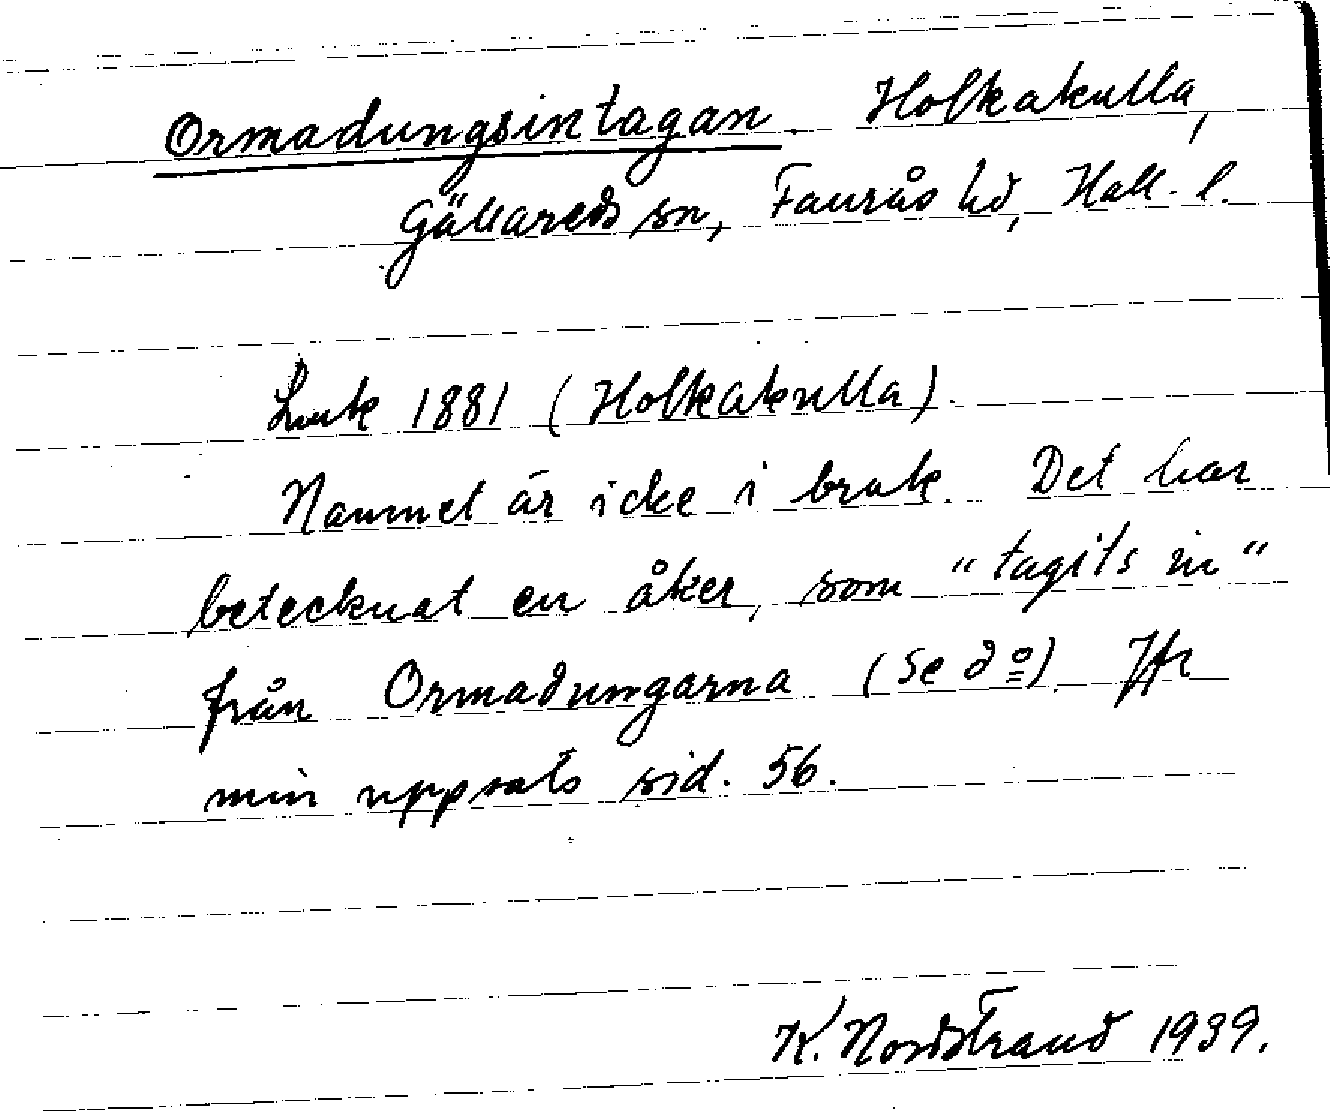 Ormadungsintagan. Holkakulla,
Gällareds sn, Faurås hd, Hall. l.
Lmk 1881 (Holkakulla).
Namnet är icke i bruk. Det har
betecknat en åker, som "tagits in"
från Ormadungarna (se do). Jfr
min uppsats sid. 56.
K. Nordstrand 1939.